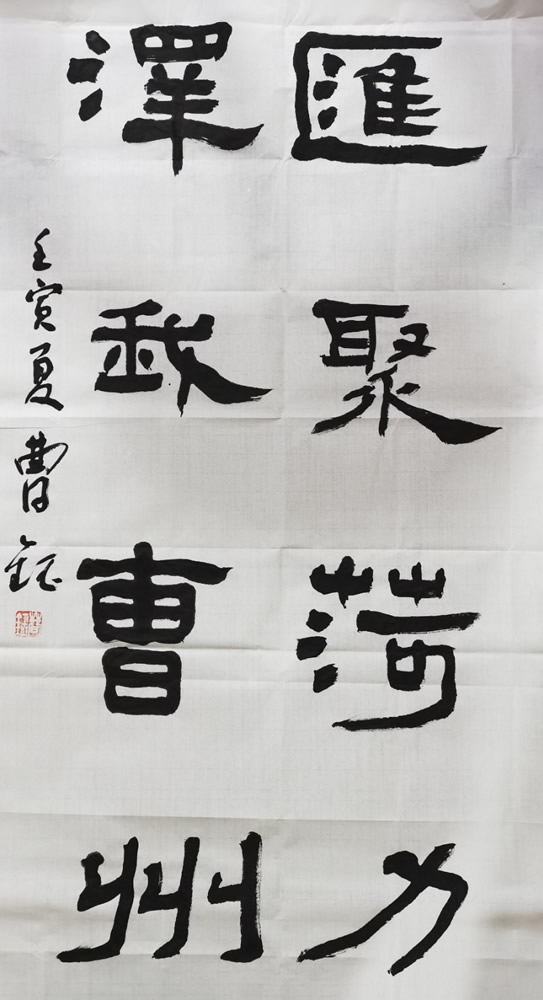 匯聚菏力
澤我曹州
壬寅夏
曹